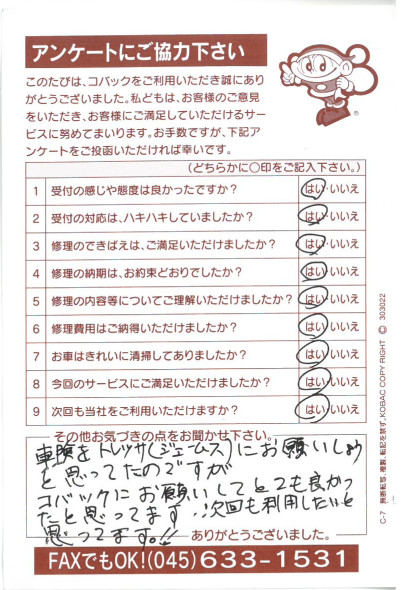 アンケートにご協力下さい
このたびは、コバックをご利用いただき誠にあり
がとうございました。私どもは、お客様のご意見
をいただき、お客様にご満足していただけるサー
ビスに努めてまいります。お手数ですが、下記ア
ンケートをご投函いただければ幸いです。
(どちらかに〇印をご記入下さい。)
1 受付の感じや態度は良かったですか? はい・いいえ
2 受付の対応は、ハキハキしていましたか? はい・いいえ
3 修理のできばえは、ご満足いただけましたか? はい・いいえ
4 修理の納期は、お約束どおりでしたか? はい・いいえ
5 修理の内容等についてご理解いただけましたか? はい・いいえ
6 修理費用はご納得いただけましたか? はい・いいえ
7 お車はきれいに清掃してありましたか? はい・いいえ
8 今回のサービスにご満足いただけましたか? はい・いいえ
9 次回も当社をご利用いただけますか? はい・いいえ
その他お気づきの点をお聞かせ下さい。
車険をトレッサ(ジェームス)にお願いしよう
と思ってたのですが
コバックにお願いしてとても良かっ
たと思ってます。次回も利用したいと
思ってます。!!
ありがとうございました。
FAXでもOK!(045)633-1531
C-7 無断転写、複製、転記を禁ず。KOBAC COPY RIGHT © 303022
®